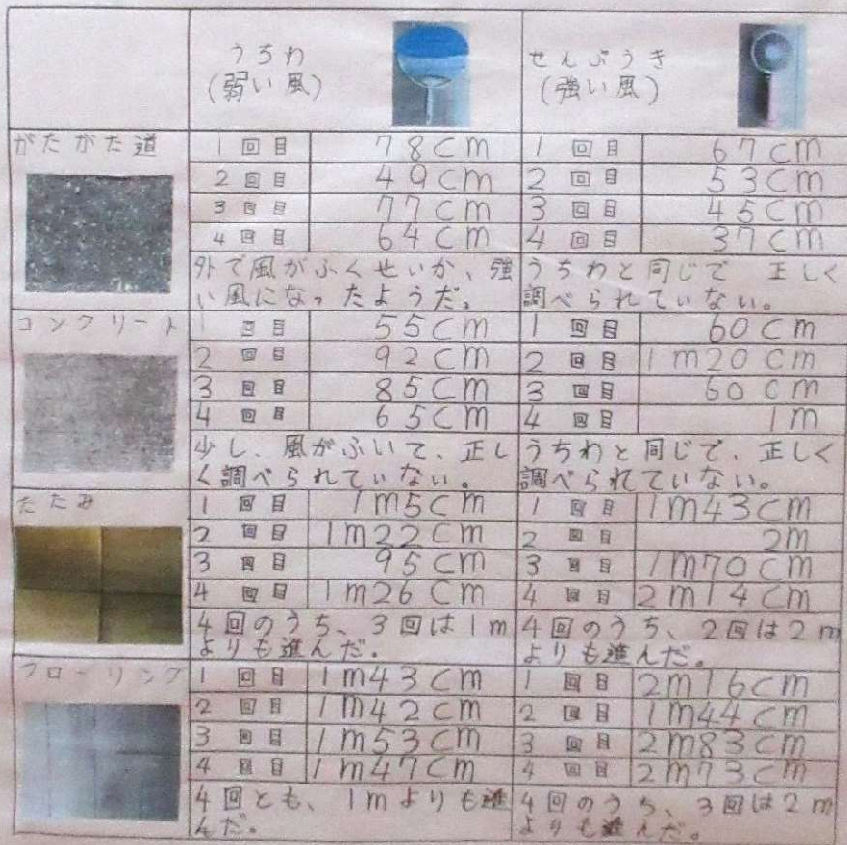 うちわ
(弱い風)
せんぷうき
(強い風)
がたがた道
1回目 78cm 1回目 67cm
2回目 49cm 2回目 53cm
3回目 77cm 3回目 45cm
4回目 64cm 4回目 37cm
外で風がふくせいか、強
い風になったようだ。
うちわと同じで 正しく
調べられていない。
コンクリート
1回目 55cm 1回目 60cm
2回目 92cm 2回目 1m20cm
3回目 85cm 3回目 60cm
4回目 65cm 4回目 1m
少し、風がふいて、正し
く調べられていない。
うちわと同じで、正しく
調べられていない。
たたみ
1回目 1m5cm 1回目 1m43cm
2回目 1m22cm 2回目 2m
3回目 95cm 3回目 1m70cm
4回目 1m26cm 4回目 2m14cm
4回のうち、3回は1m
よりも進んだ。
4回のうち、2回は2m
よりも進んだ。
フローリング
1回目 1m43cm 1回目 2m16cm
2回目 1m42cm 2回目 1m44cm
3回目 1m53cm 3回目 2m83cm
4回目 1m47cm 4回目 2m73cm
4回とも、1mよりも進
んだ。
4回のうち、3回は2m
よりも進んだ。